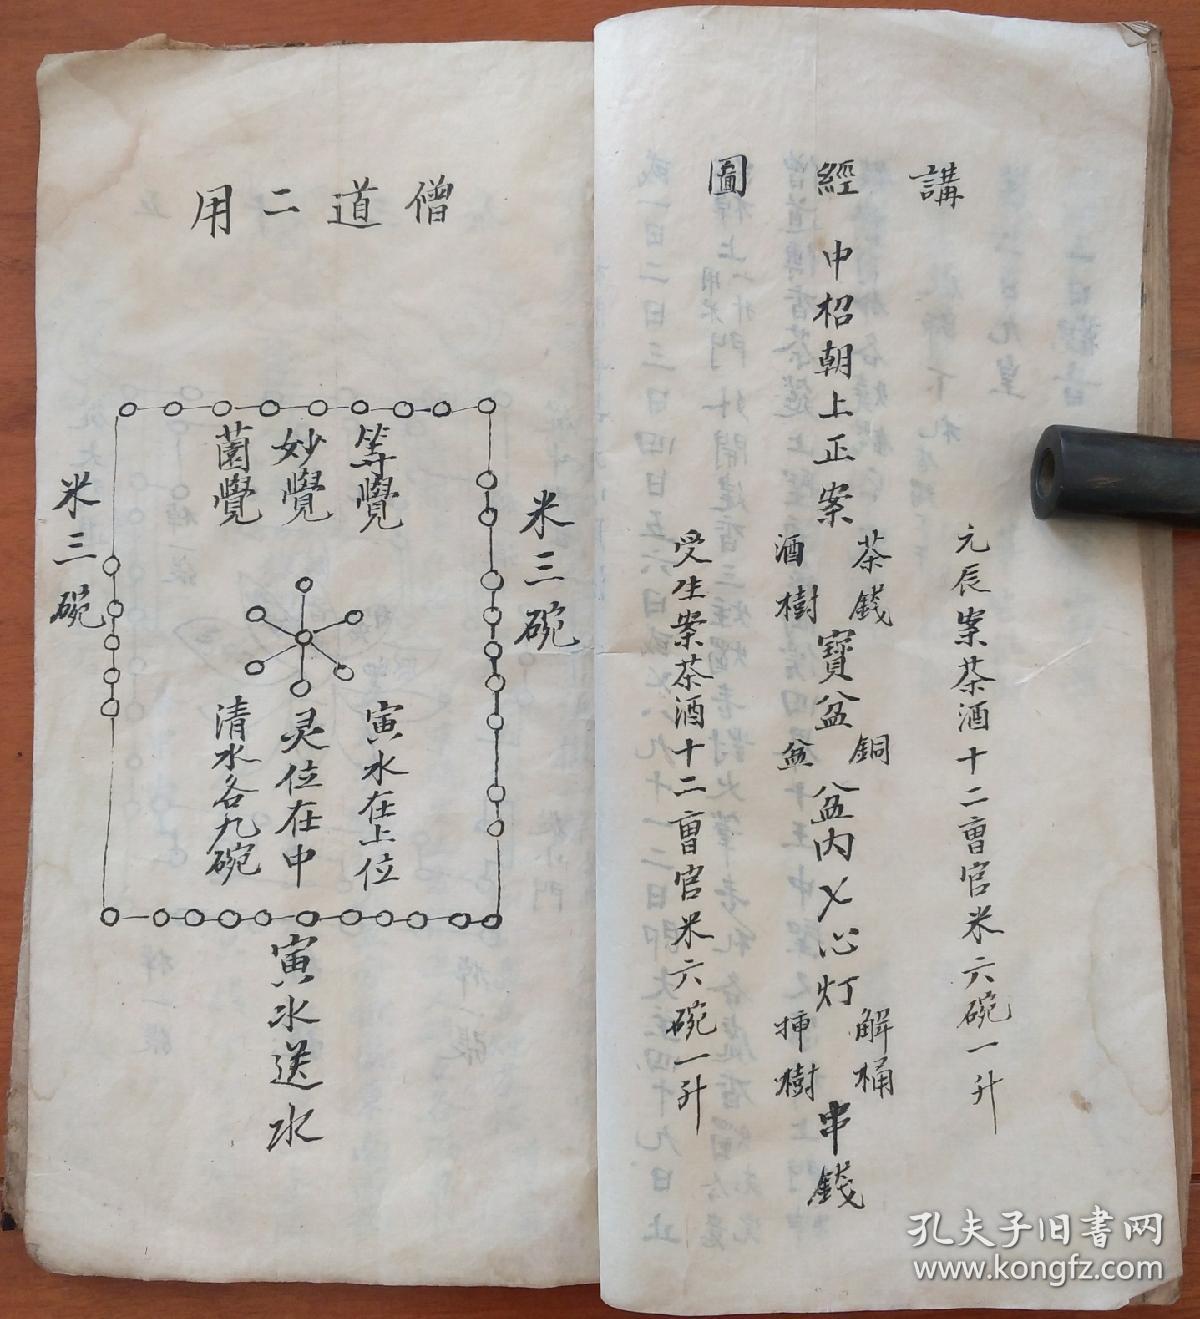 講經圖
元辰案茶酒十二曹官米六碗一升
茶錢
銅
解桶
中招朝上正案
寶盆
盆内七心灯
串錢
酒樹
盆
挿樹
受生案茶酒十二曹官米六碗一升
僧道二用
米三碗
等覺
妙覺
菌覺
米三碗
寅水在上位
灵位在中
清水各九碗
寅水送水
孔夫子旧书网
www.kongfz.com